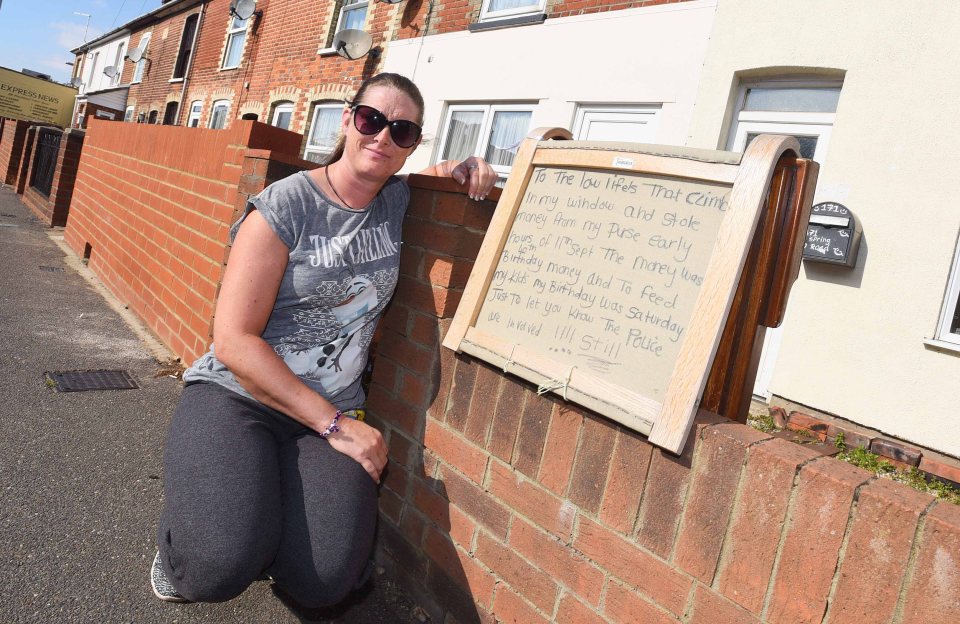 EXPRESS NEWS
JUST CHILLING
To The low lifes That climb
In my window and stole
money from my Purse early
hours of 11th Sept The money was
Birthday money and To feed
my kids my Birthday was Saturday
Just To let you Know The Police
are Involved !!!! Still
171
171